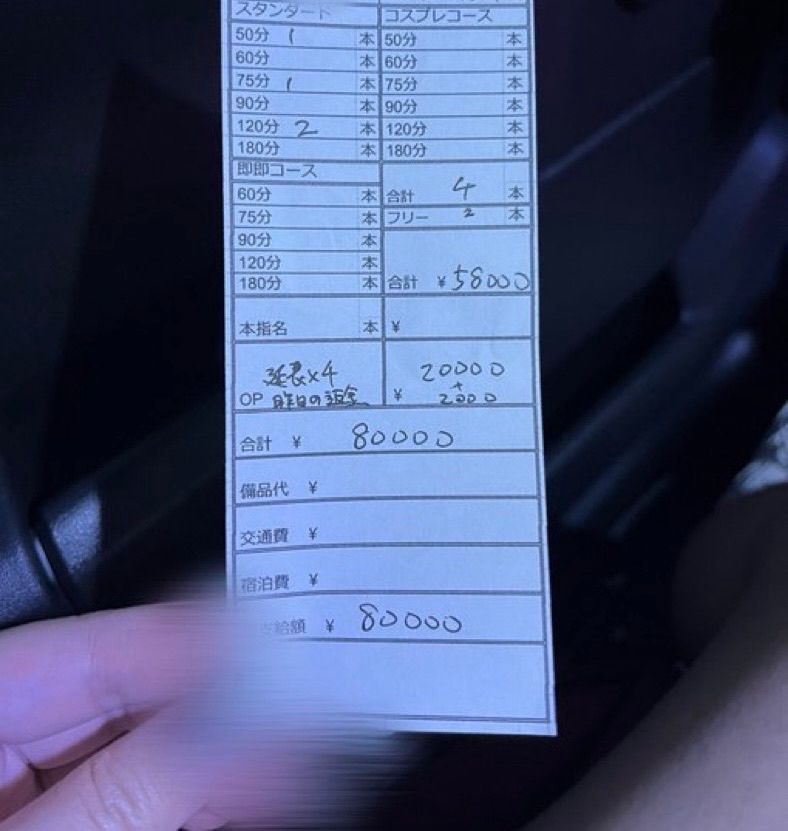 スタンダード コスプレコース
50分 1 本 50分 本
60分 本 60分 本
75分 1 本 75分 本
90分 本 90分 本
120分 2 本 120分 本
180分 本 180分 本
即即コース
60分 本 合計 4 本
75分 本 フリー 2 本
90分 本
120分 本
180分 本 合計 ¥58000
本指名 本 ¥
延長×4 20000
+
OP 昨日の返金 ¥ 2000
合計 ¥ 80000
備品代 ¥
交通費 ¥
宿泊費 ¥
支給額 ¥ 80000